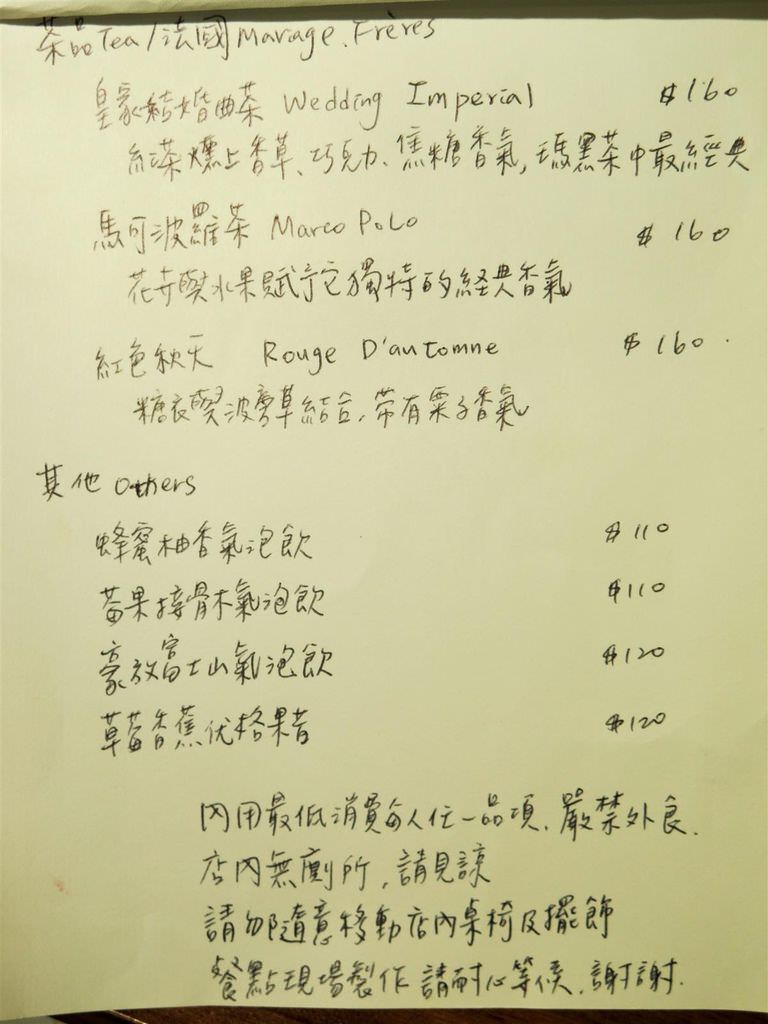 茶品 Tea / 法國 Mariage Frères
皇家結婚曲茶 Wedding Imperial $160
紅茶燻上香草、巧克力、焦糖香氣, 瑪黑茶中最經典
馬可波羅茶 Marco Polo $160
花卉與水果賦予它獨特的經典香氣
紅色秋天 Rouge D'automne $160
糖衣與波旁草結合, 帶有栗子香氣
其他 Others
蜂蜜柚香氣泡飲 $110
莓果接骨木氣泡飲 $110
豪放富士山氣泡飲 $120
草莓香蕉优格果昔 $120
內用最低消費每人任一品項, 嚴禁外食.
店內無廁所, 請見諒
請勿隨意移動店內桌椅及擺飾
餐點現場製作 請耐心等候, 謝謝.